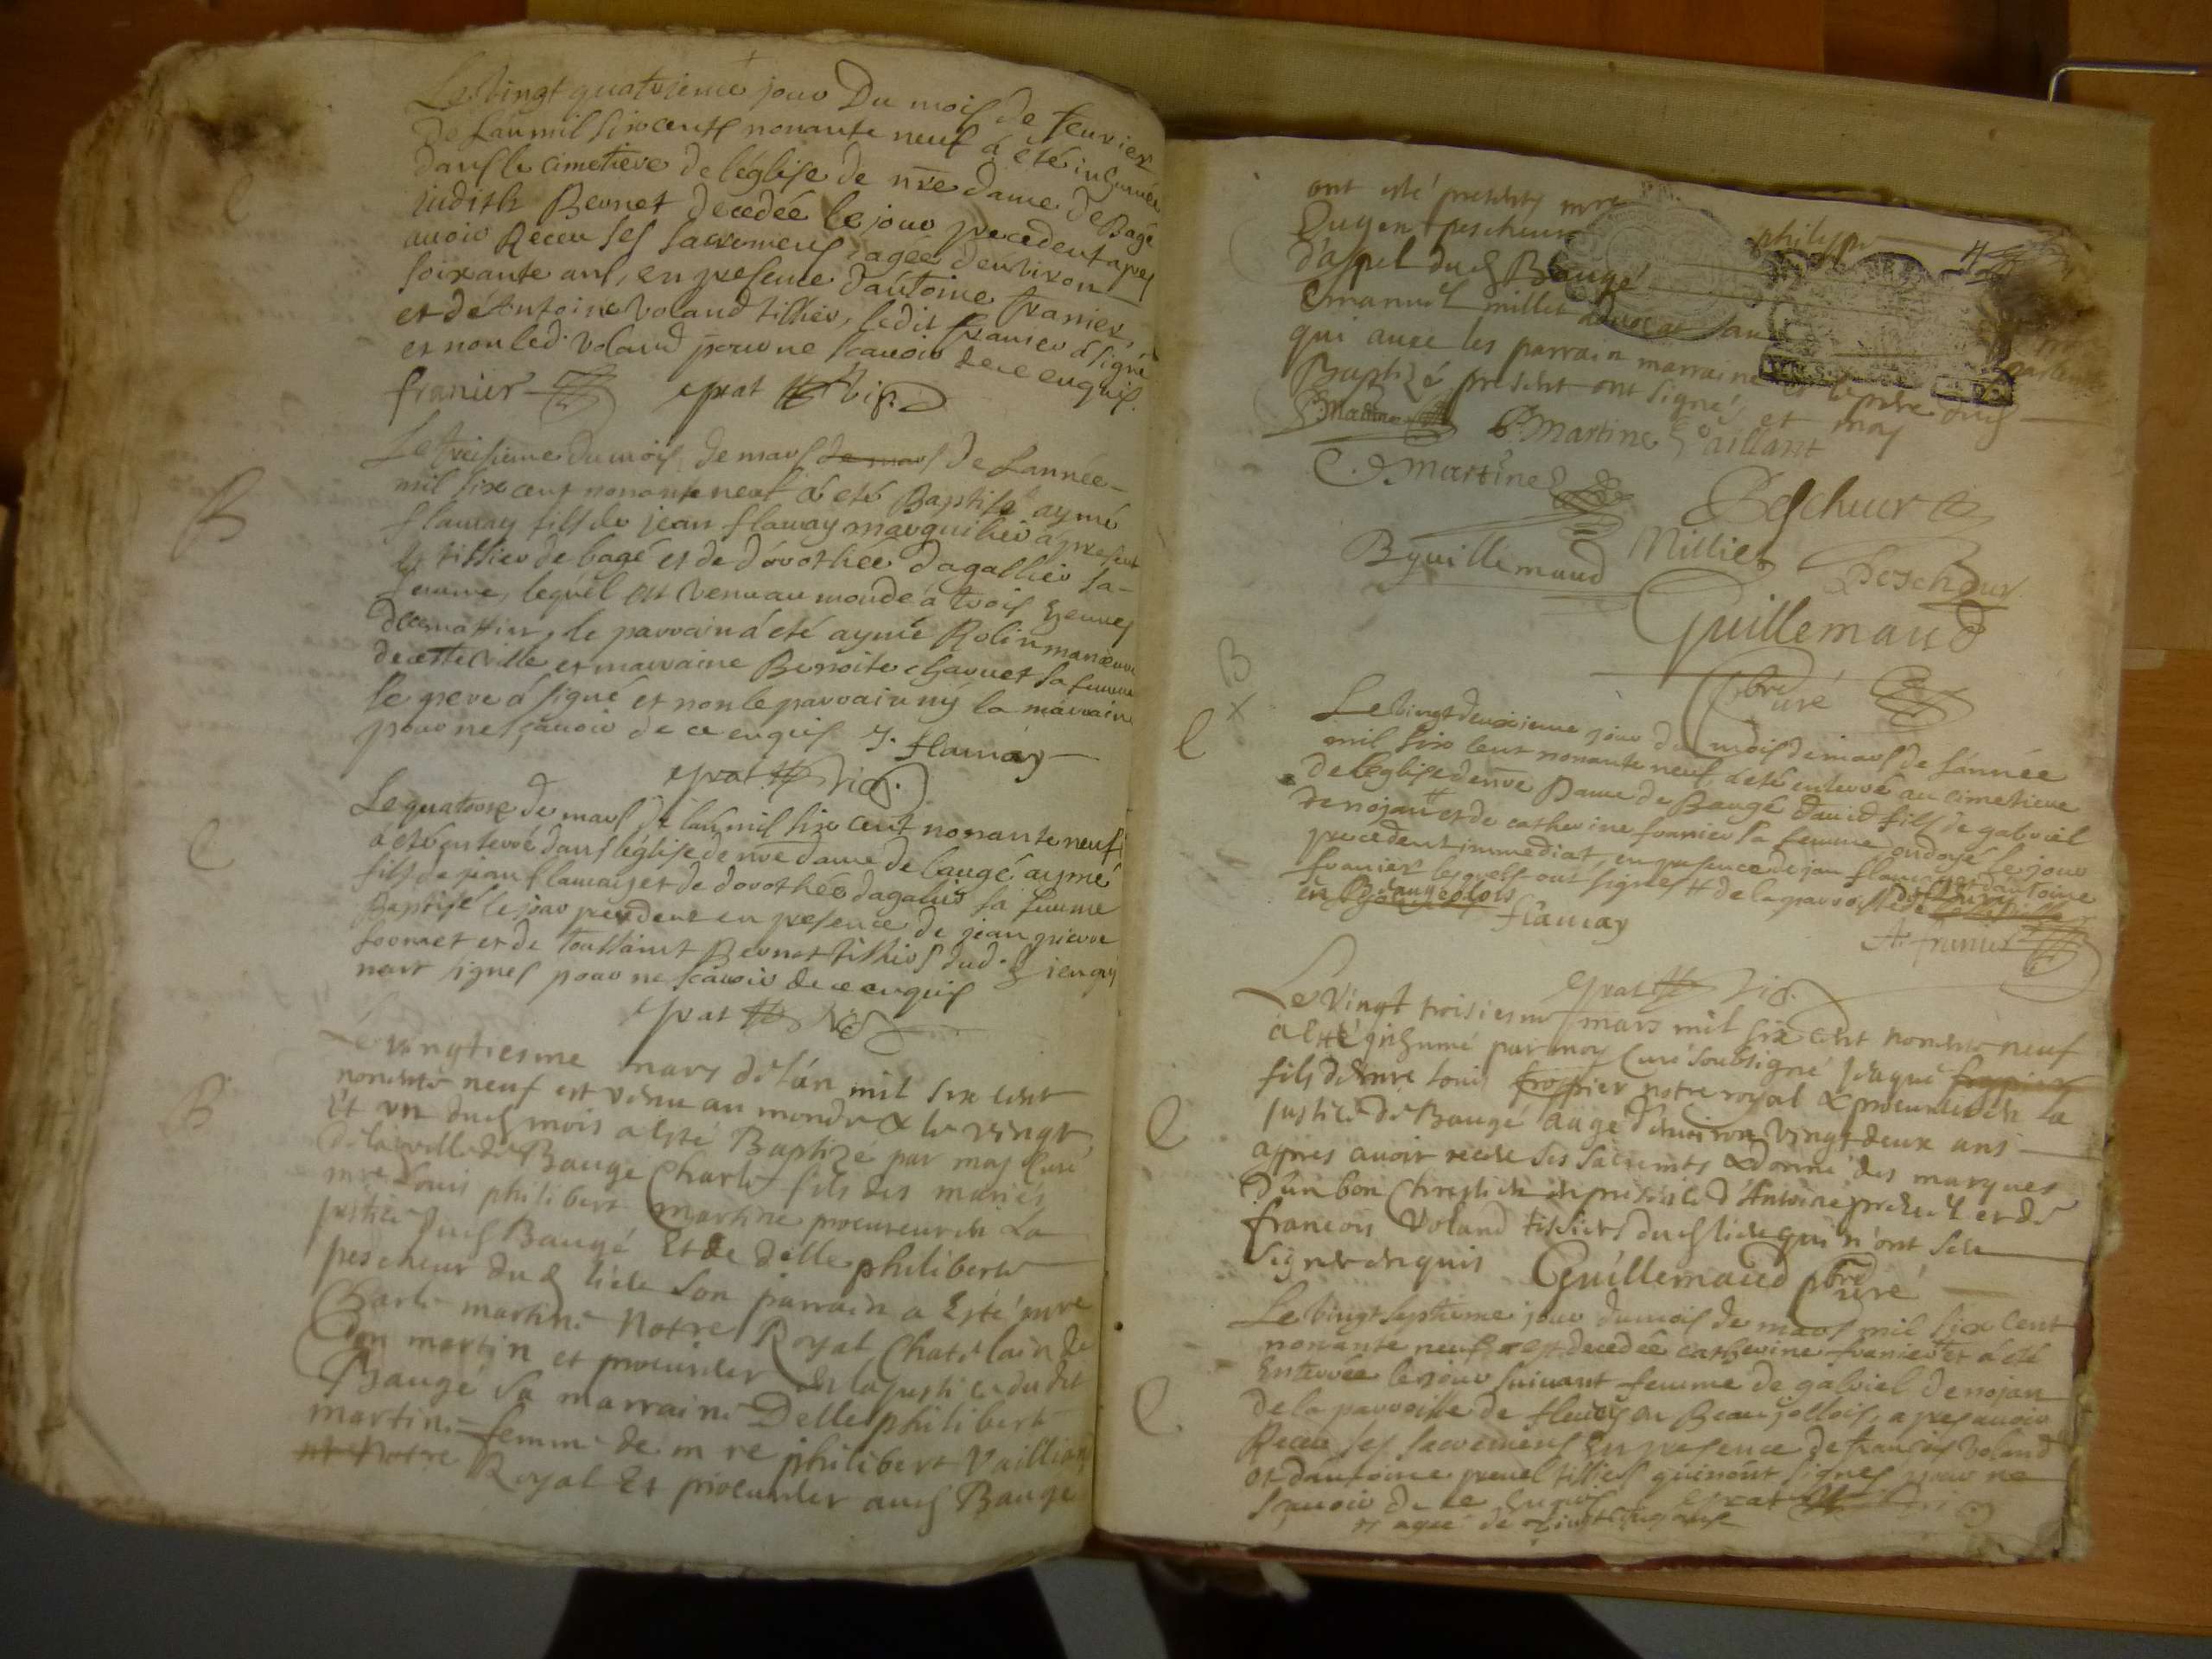 Le vingt quatrieme jour Du mois de feuvrier
de l'an mil six cents nonante neuf à été inhumée
dans le cimetiere de l'église de nre dame de Bagé
judith Bernet decedée le jour precedent apres
auoir Receu ses sacremens, agée d'environ
soixante ans, en presence d'antoine franier,
et de Antoine voland tissier, ledit franier à signé
et non led. voland pour ne scauoir de ce enquis.
franier eprat vic.
B
Le treisieme du mois de mars de mars de L'année
mil six cent nonante neuf à eté Baptisé aymé
flamay fils de jean flamay marguilier à present
et tissier de bagé et de dorothée dagallier sa
femme, lequel est venu au monde à trois heures
du matin, le parrain à eté aymé Rolin
de cette ville et marraine Benoite chavuet sa femme
le pere à signé et non le parrain ny la marraine
pour ne sçauoir de ce enquis J. flamay
eprat vic.
C
Le quatorze de mars de l'an mil six cent nonante neuf
à eté enterré dans l'église de nre dame de baugé aymé
fils de jean flamay et de dorothée dagallier sa femme
Baptisé le jour precedent en presence de jean pierre
et de toussaint Bernet tissiers dud. lieu qui
n'ont signés pour ne scauoir de ce enquis
eprat vic
B
Le vingtiesme mars de l'an mil six cent
nonente neuf est venu au monde & le vingt
Et un dud mois a esté Baptizé par moy Curé
de la ville de Baugé Charle fils des mariés
mre Louis philibert martine procureur en La
justice dud Baugé Et de delle philiberte
pescheur dud lieu son parrain a Esté mre
Charle martine Notre Royal Chatelain de
don martin et procureur en la justice dudit
Baugé sa marraine Delle philiberte
martine femme de mre philibert Vaillant
Royal Et procureur aud Baugé
ont esté presents mre philippe
Dugen pescheur
d'appel dud Baugé
Emanuel millet advocat
qui auec les parrain marraine et le pere dud
Baptizé present ont signé et moy
P. Martine Vaillant
C. Martine
Pescheur
B guillemaud Milliet Peschour
Guillemaud
pbre Curé
B
X
C
Le vingt deuxieme jour du mois de mars de l'année
mil six cent nonante neuf, à eté enterré au cimetiere
de l'église de nre Dame de Baugé david fils de gabriel
denojan et de catherine franier sa femme ondoyé le jour
precedent immediat, en presence de jean flamay et d'antoine
franier lesquels ont signes # de la parroisse de
en Beaugeolois flamay A. franier
eprat vic.
C
Le vingt troisiesme mars mil six cent nonente neuf
a esté inhumé par moy Curé soubsigné
fils de mre louis notre royal & procureur en la
justice de Baugé aagé d'enuiron vingt deux ans
apres auoir receu ses sacrements & donné des marques
d'un bon Chrestien en presence d'Antoine preuel et de
francois Voland tissiers dud lieu qui n'ont sceu
signer enquis Guillemaud pbre Curé
C
Le vingt septieme jour du mois de mars mil six cent
nonante neuf est decedée catherine franier et à eté
Enterrée le jour suivant femme de gabriel denojan
de la parroisse de fleury en Beaujollois, apres auoir
Receu ses sacremens En presence de françois voland
et d'antoine preuel tissiers qui n'ont signes pour ne
sçauoir de ce enquis eprat vic
# agée de vingt cinq ans